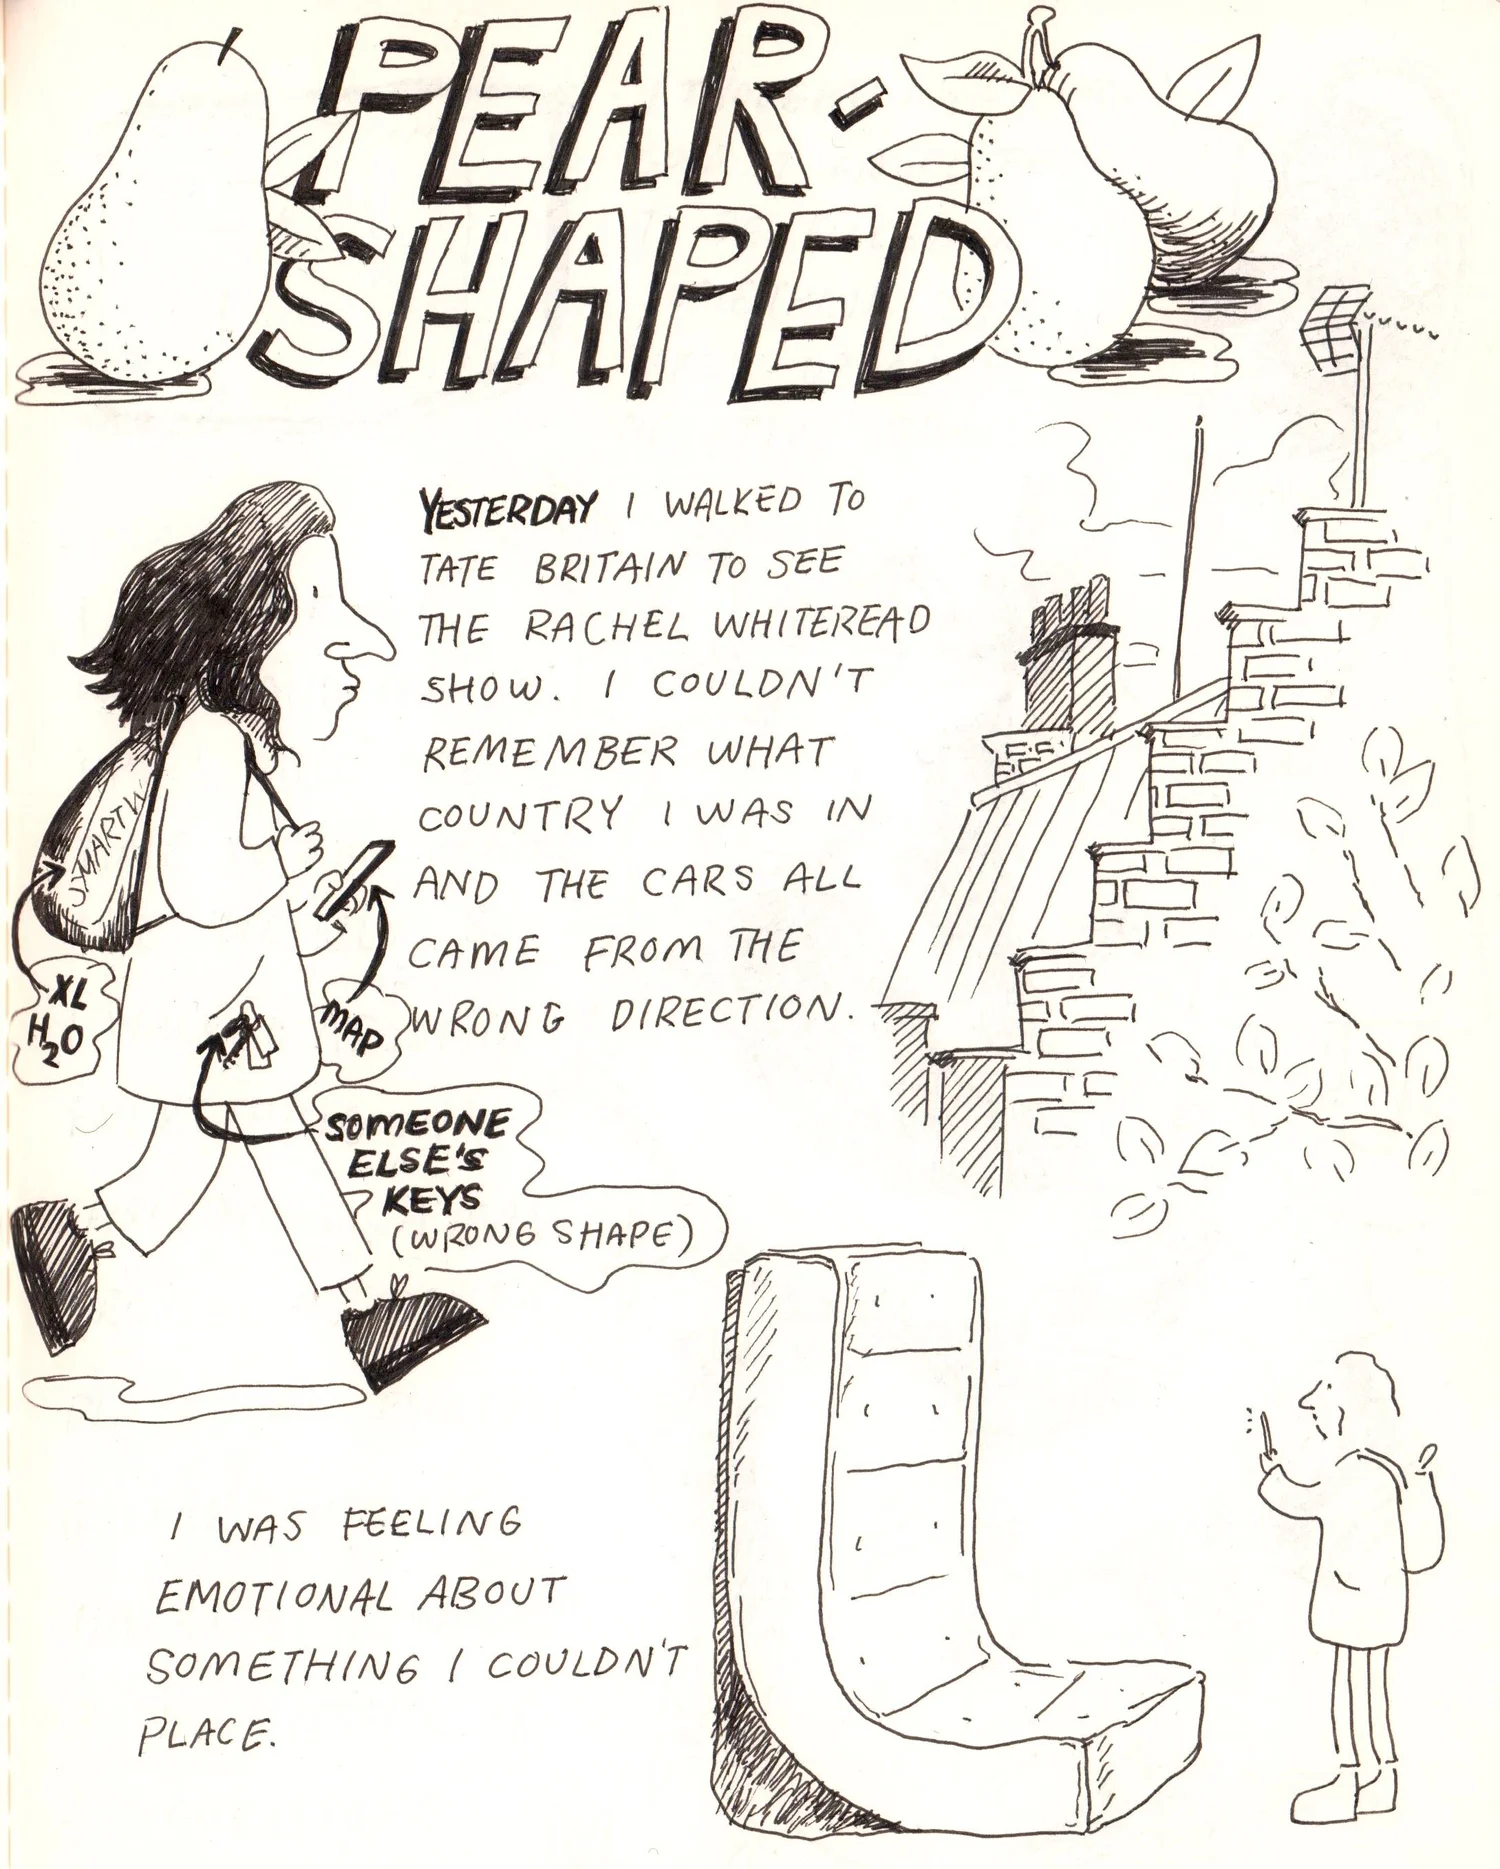 PEAR-
SHAPED
YESTERDAY I WALKED TO
TATE BRITAIN TO SEE
THE RACHEL WHITEREAD
SHOW. I COULDN'T
REMEMBER WHAT
COUNTRY I WAS IN
AND THE CARS ALL
CAME FROM THE
WRONG DIRECTION.
SMARTW
XL
H2O
MAP
SOMEONE
ELSE'S
KEYS
(WRONG SHAPE)
I WAS FEELING
EMOTIONAL ABOUT
SOMETHING I COULDN'T
PLACE.